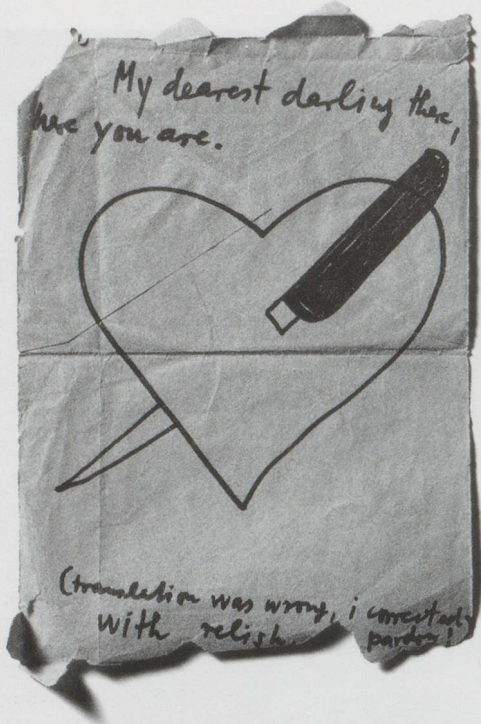 My dearest darling there,
here you are.
(translation was wrong, i corrected
with relish. pardon!